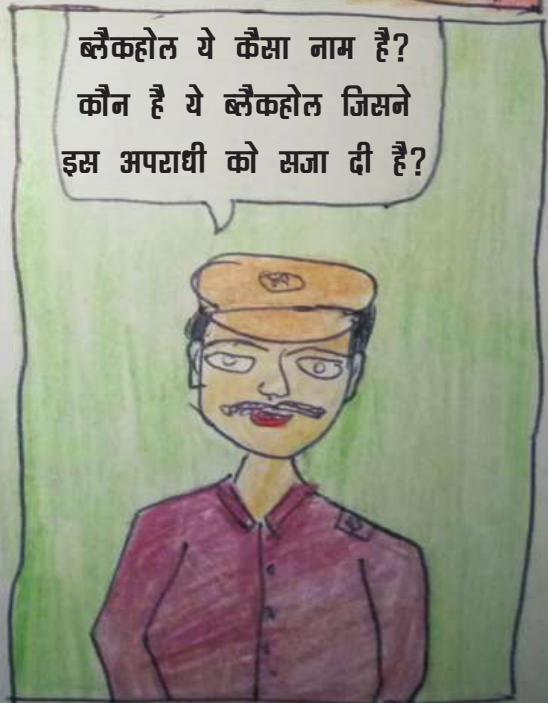 ब्लैकहोल ये कैसा नाम है?
कौन है ये ब्लैकहोल जिसने
इस अपराधी को सजा दी है?